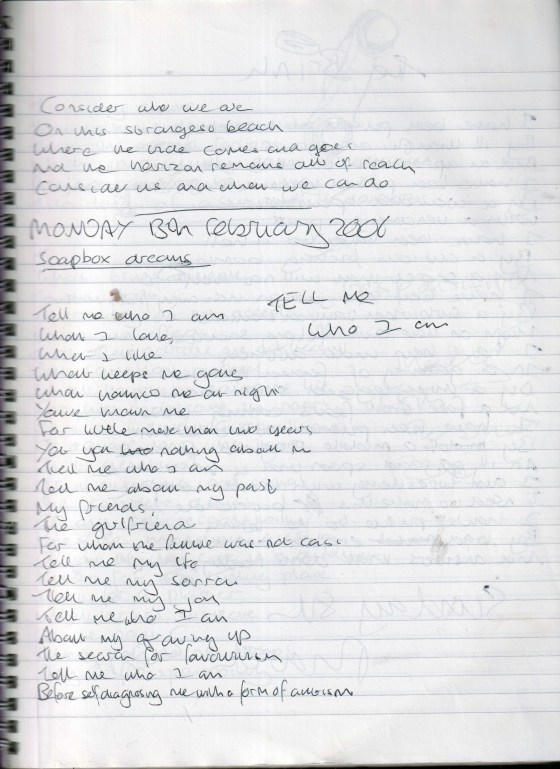 Consider who we are
On this strangest beach
Where the tide comes and goes
And the horizon remains out of reach
Consider us and what we can do
MONDAY 13th February 2006
Soapbox dreams
TELL ME
WHO I am
Tell me who I am
What I love,
What I like
What keeps me going
What haunts me at night
You've known me
For little more than two years
Yet you nothing about me
Tell me who I am
Tell me about my past
My friends,
The girlfriend
For whom the future was not cast
Tell me my life
Tell me my sorrow
Tell me my joy
Tell me who I am
About my growing up
The search for favouritism
Tell me who I am
Before self diagnosing me with a form of autism